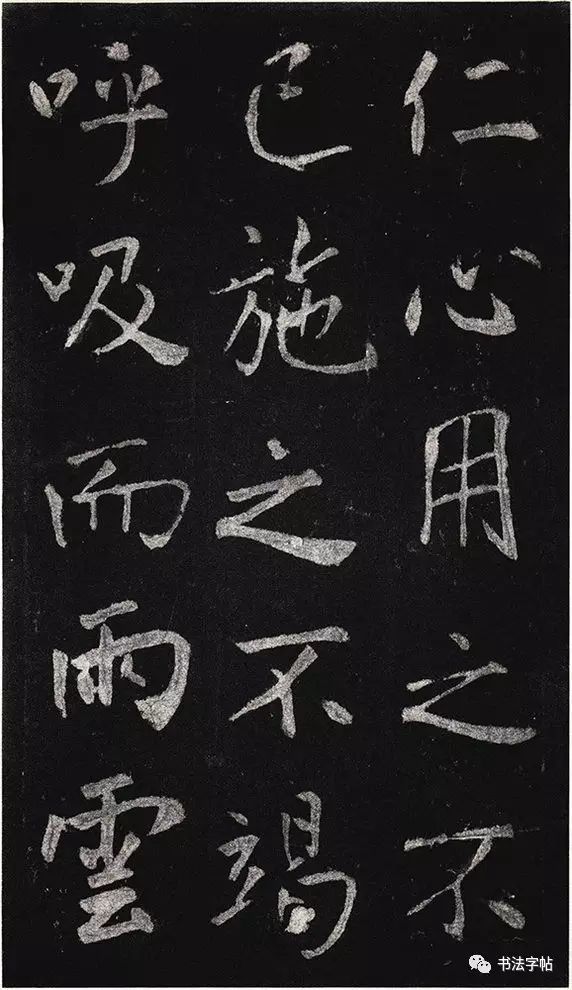 仁心用之不
已施之不竭
呼吸而雨雲
书法字帖